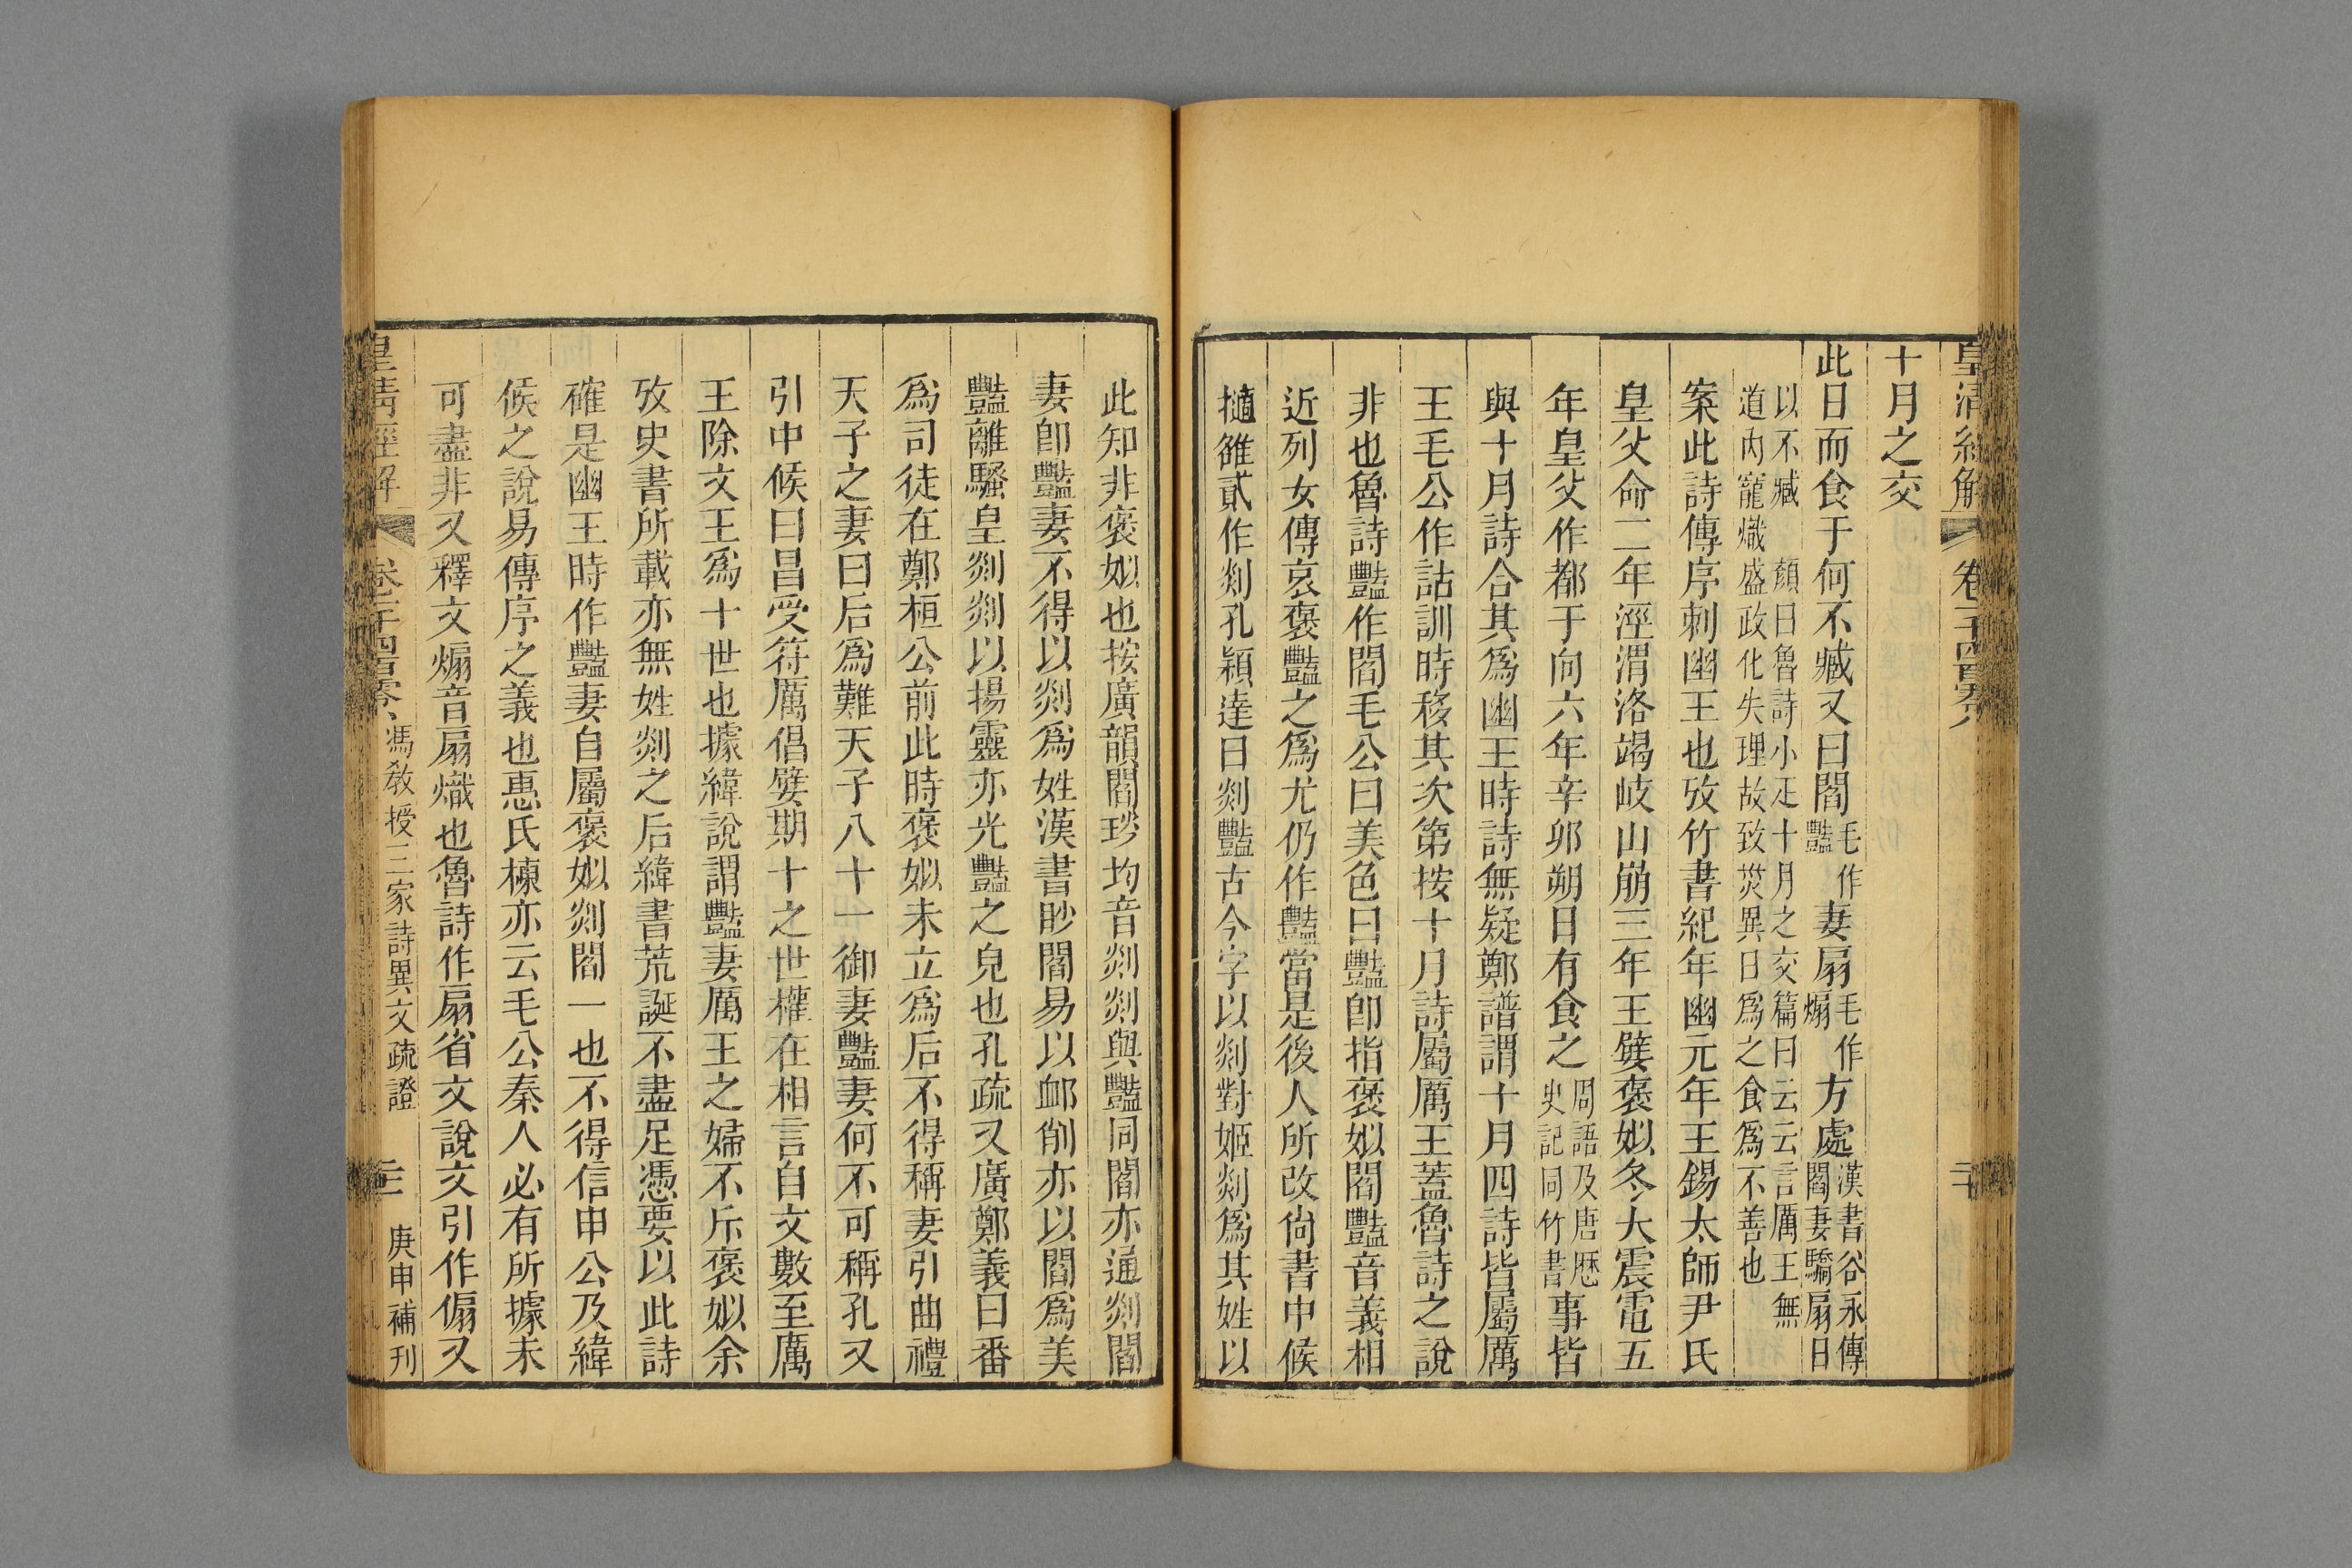 皇清經解 卷一千四百零八 二十
十月之交
此日而食于何不臧又曰閻毛作豔妻扇毛作煽方處漢書谷永傳閻妻驕扇日
以不臧 顏曰魯詩小疋十月之交篇曰云云言厲王無
道內寵熾盛政化失理故致烖異日爲之食爲不善也
案此詩傳序刺幽王也攷竹書紀年幽元年王錫太師尹氏
皇父命二年涇渭洛竭岐山崩三年王嬖褒姒冬大震電五
年皇父作都于向六年辛卯朔日有食之周語及唐厯史記同竹書事皆
與十月詩合其爲幽王時詩無疑鄭譜謂十月四詩皆屬厲
王毛公作詁訓時移其次第按十月詩屬厲王蓋魯詩之說
非也魯詩豔作閻毛公曰美色曰豔卽指褒姒閻豔音義相
近列女傳哀褒豔之爲尤仍作豔當是後人所改尙書中候
擿雒貳作剡孔穎達曰剡豔古今字以剡對姬剡爲其姓以
此知非褒姒也按廣韻閻琰均音剡剡與豔同閻亦通剡閻
妻卽豔妻不得以剡爲姓漢書眇閻易以卹削亦以閻爲美
豔離騷皇剡剡以揚靈亦光豔之皃也孔疏又廣鄭義曰番
爲司徒在鄭桓公前此時褒姒未立爲后不得稱妻引曲禮
天子之妻曰后爲難天子八十一御妻豔妻何不可稱孔又
引中候曰昌受符厲倡嬖期十之世權在相言自文數至厲
王除文王爲十世也據緯說謂豔妻厲王之婦不斥褒姒余
攷史書所載亦無姓剡之后緯書荒誕不盡足憑要以此詩
確是幽王時作豔妻自屬褒姒剡閻一也不得信申公及緯
候之說易傳序之義也惠氏棟亦云毛公秦人必有所據未
可盡非又釋文煽音扇熾也魯詩作扇省文說文引作傓又
皇清經解 卷一千四百零八 馮敎授三家詩異文疏證 二十 庚申補刊